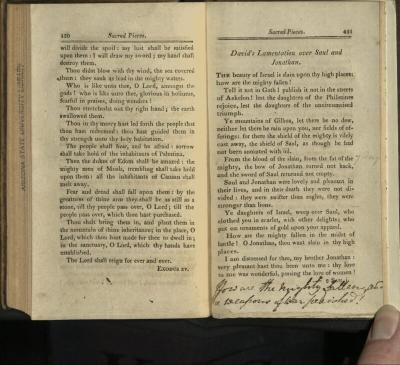 420 Sacred Pieces.
will divide the spoil: my lust shall be satisfied
upon them: I will draw my sword; my hand shall
destroy them.
Thou didst blow with thy wind, the sea covered
them: they sank as lead in the mighty waters.
Who is like unto thee, O Lord, amongst the
gods! who is like unto thee, glorious in holiness,
fearful in praises, doing wonders!
Thou stretchedst out thy right hand; the earth
swallowed them.
Thou in thy mercy hast led forth the people that
thou hast redeemed: thou hast guided them in
thy strength unto thy holy habitation.
The people shall hear, and be afraid: sorrow
shall take hold of the inhabitants of Palestina.
Then the dukes of Edom shall be amazed; the
mighty men of Moab, trembling shall take hold
upon them: all the inhabitants of Canaan shall
melt away.
Fear and dread shall fall upon them: by the
greatness of thine arm they shall be as still as a
stone, till thy people pass over, O Lord; till the
people pass over, which thou hast purchased.
Thou shalt bring them in, and plant them in
the mountain of thine inheritance; in the place, O
Lord, which thou hast made for thee to dwell in;
in the sanctuary, O Lord, which thy hands have
established.
The Lord shall reign for ever and ever.
Exodus xv.
Sacred Pieces. 421
David's Lamentation over Saul and
Jonathan.
The beauty of Israel is slain upon thy high places:
how are the mighty fallen!
Tell it not in Gath; publish it not in the streets
of Askelon! lest the daughters of the Philistines
rejoice, lest the daughters of the uncircumcised
triumph.
Ye mountains of Gilboa, let there be no dew,
neither let there be rain upon you, nor fields of of-
ferings: for there the shield of the mighty is vilely
cast away, the shield of Saul, as though he had
not been anointed with oil.
From the blood of the slain, from the fat of the
mighty, the bow of Jonathan turned not back,
and the sword of Saul returned not empty.
Saul and Jonathan were lovely and pleasant in
their lives, and in their death they were not di-
vided: they were swifter than eagles, they were
stronger than lions.
Ye daughters of Israel, weep over Saul, who
clothed you in scarlet, with other delights; who
put on ornaments of gold upon your apparel.
How are the mighty fallen in the midst of
battle! O Jonathan, thou wast slain in thy high
places.
I am distressed for thee, my brother Jonathan:
very pleasant hast thou been unto me: thy love
to me was wonderful, passing the love of women!
How are the mighty fallen, &
weapons of war perished!